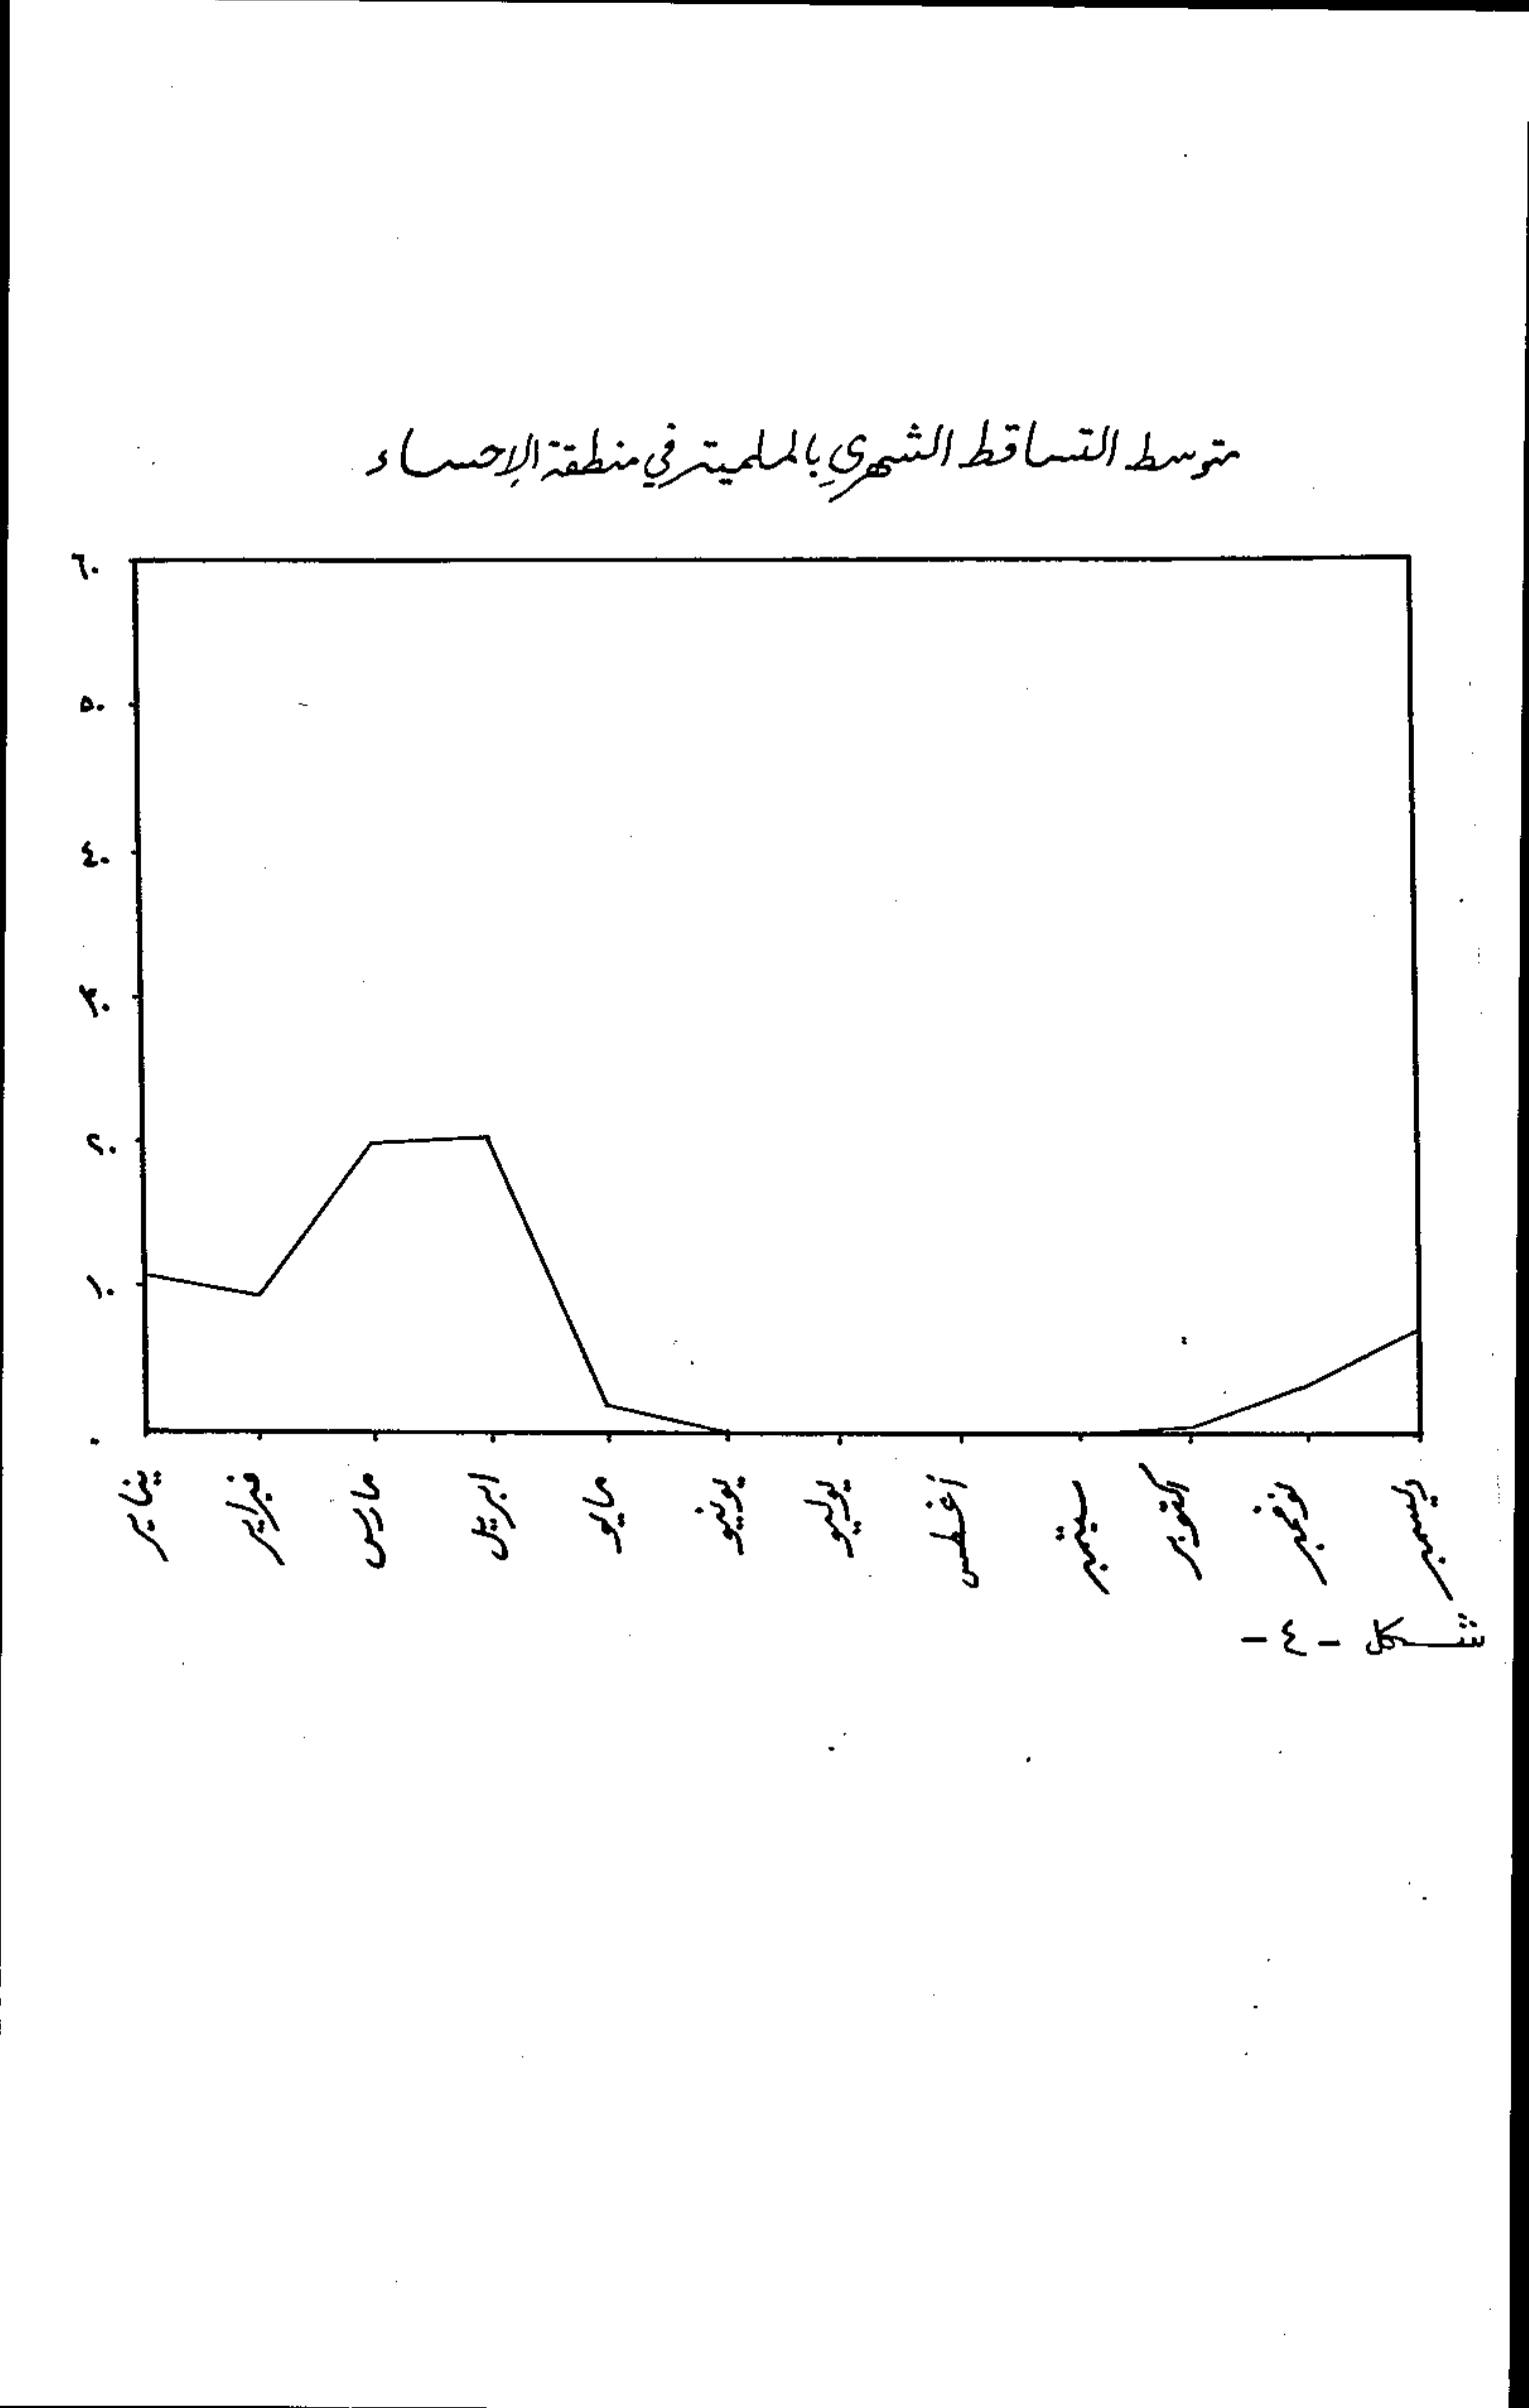 متوسط التساقط الشهري بالملميتر في منطقة الإحساء
٦٠
٥٠
٤٠
٣٠
٢٠
١٠
٠
يناير
فبراير
مارس
ابريل
مايو
يونيو
يوليو
أغطس
سبتمبر
اكتوبر
نوفمبر
ديسمبر
شكل -٤-